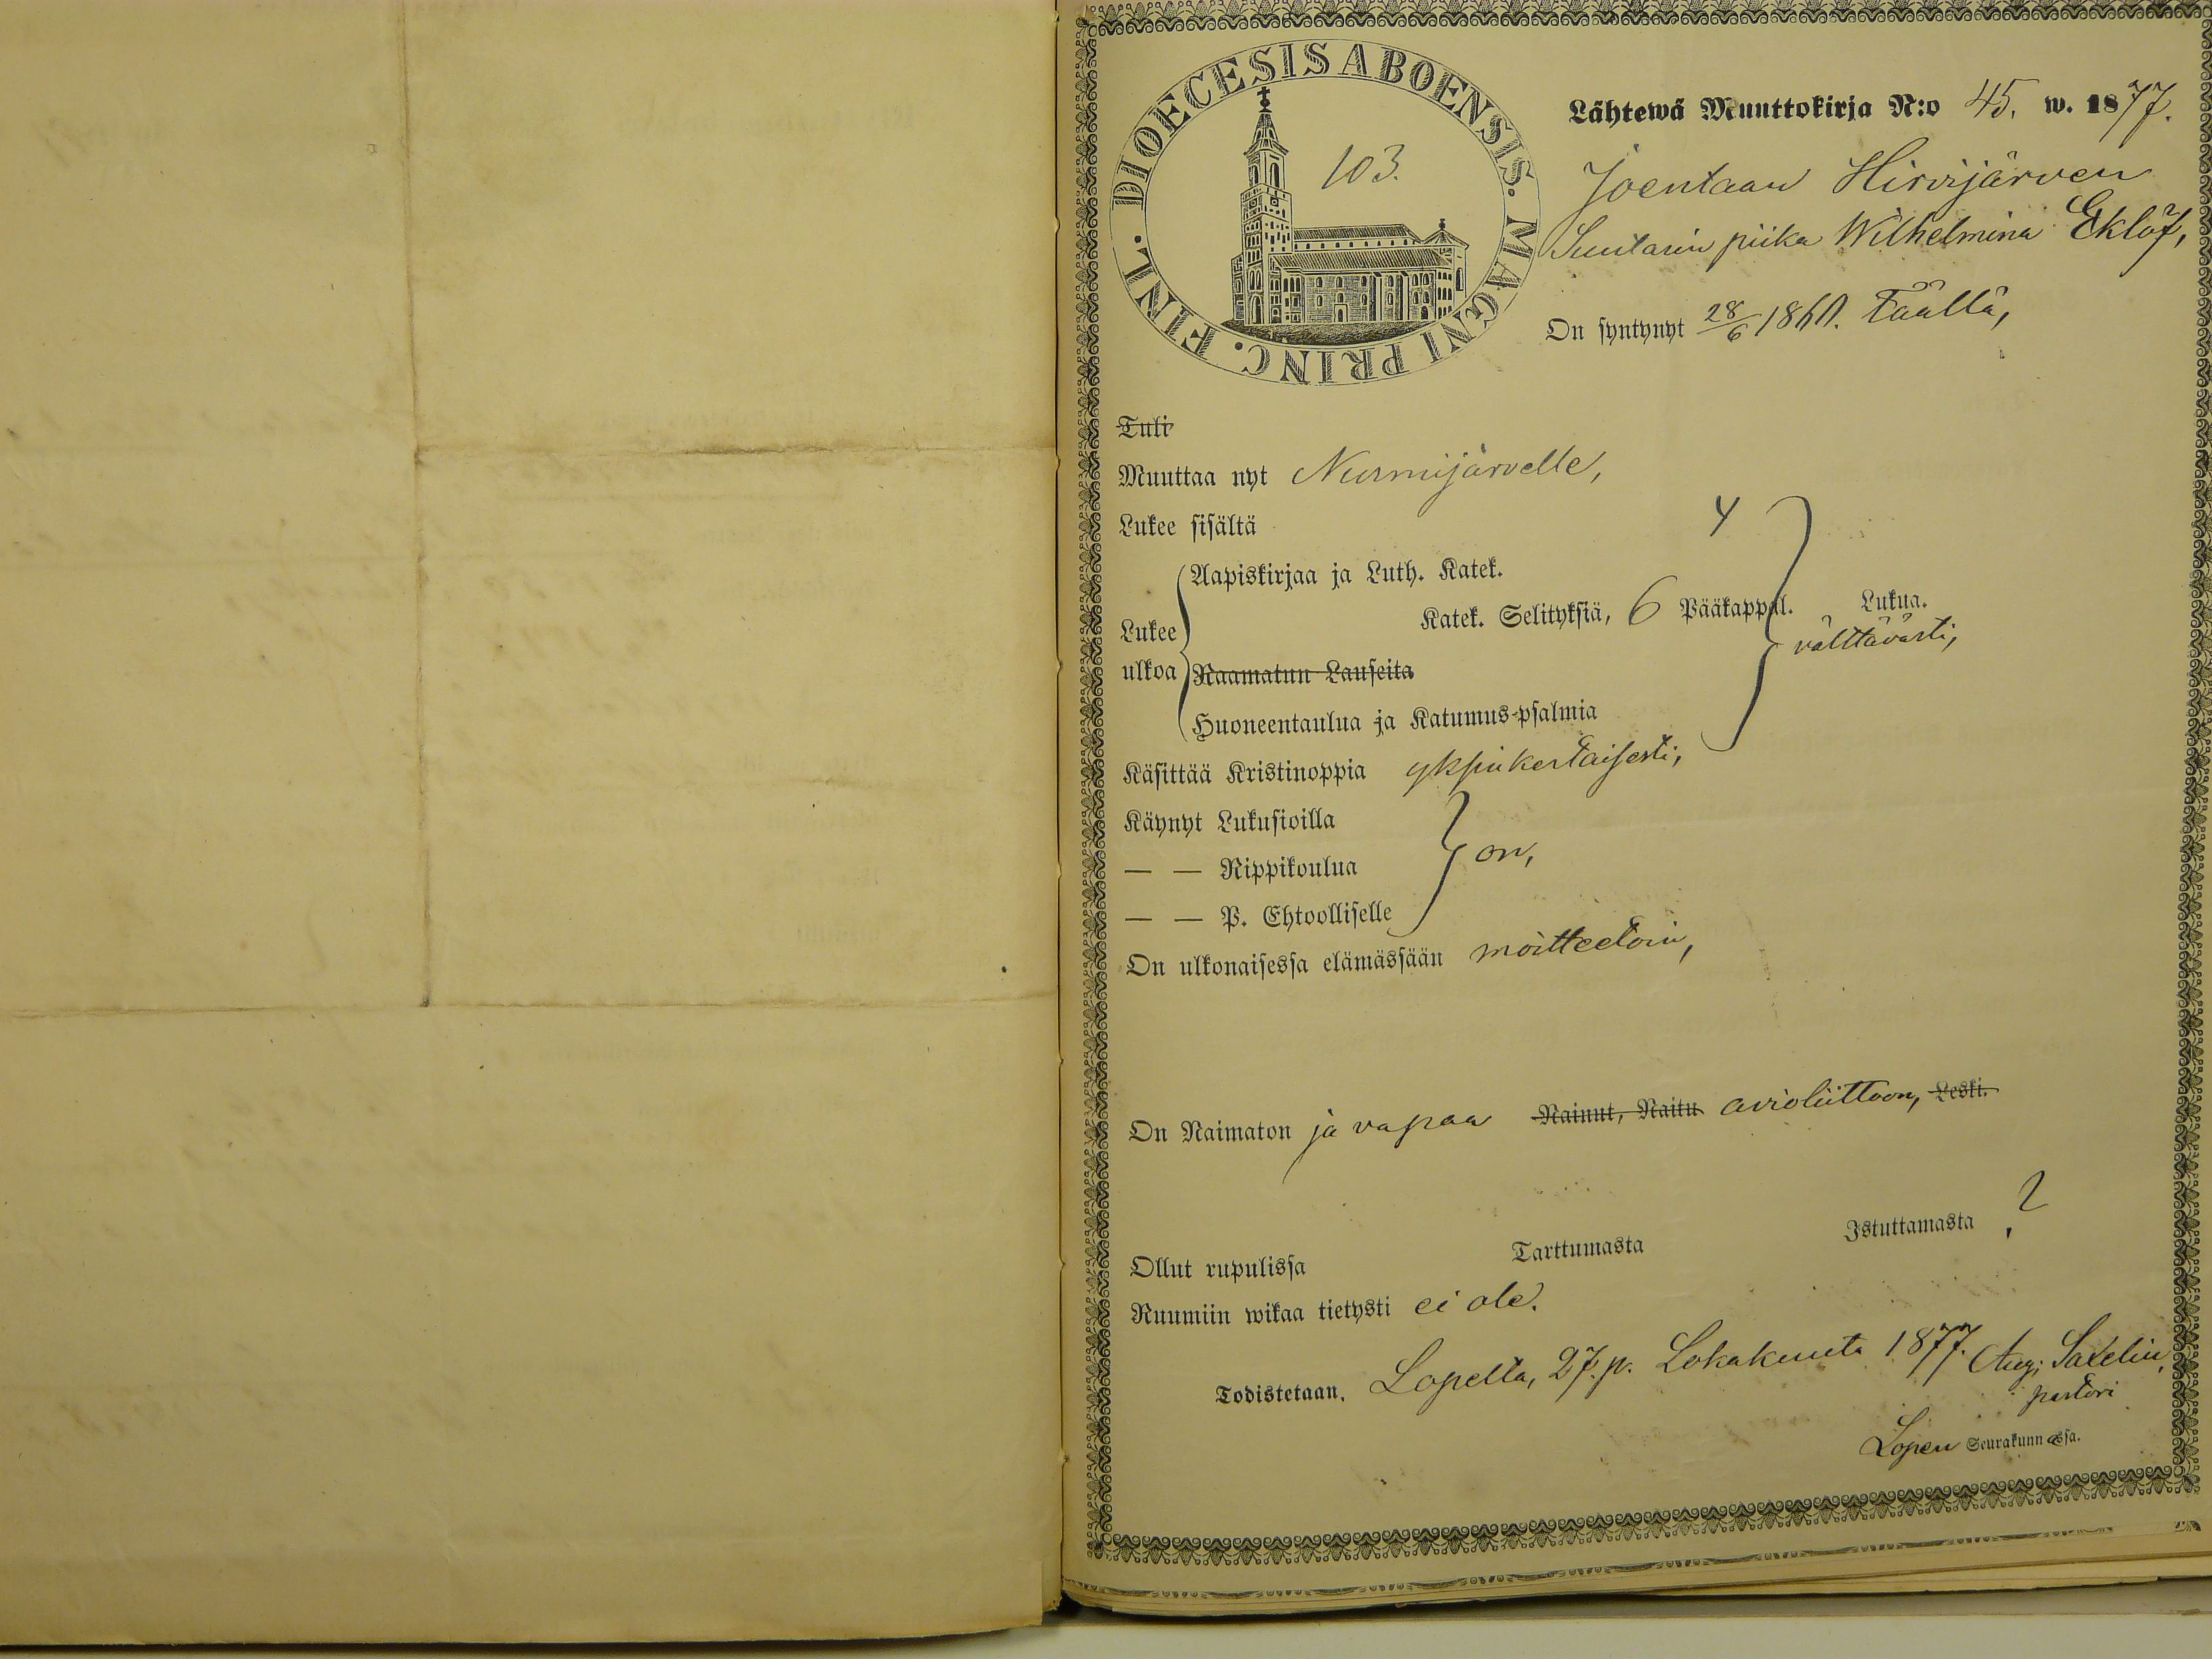 FINL. DIOECESIS ABOENSIS. MAGNI PRINC.
103.
Lähtewä Muuttokirja N:o 45. w. 1877.
Joentaan Hirvijärven
Suutarin piika Wilhelmina Eklöf,
On syntynyt 28/6 1860. Täällä,
Tuli
Muuttaa nyt Nurmijärvelle,
Lukee sisältä
Aapiskirjaa ja Luth. Katek.
Lukee ulkoa
Katek. Selityksiä, 6 Pääkappal. Lukua.
välttävästi,
Raamatun Lauseita
Huoneentaulua ja Katumus-psalmia
Käsittää Kristinoppia ykpinkertaisesti,
Käynyt Lukusioilla
— — Rippikoulua on,
— — P. Ehtoolliselle
On ulkonaisessa elämässään moitteetoin,
On Naimaton ja vapaa Nainut, Naitu avioliittoon, Leski.
Ollut rupulissa Tarttumasta Istuttamasta ?
Ruumiin wikaa tietysti ei ole.
Todistetaan. Lopella, 27. p. Lokakuuta 1877. Aug. Saxelin,
pastori
Lopen Seurakunnassa.